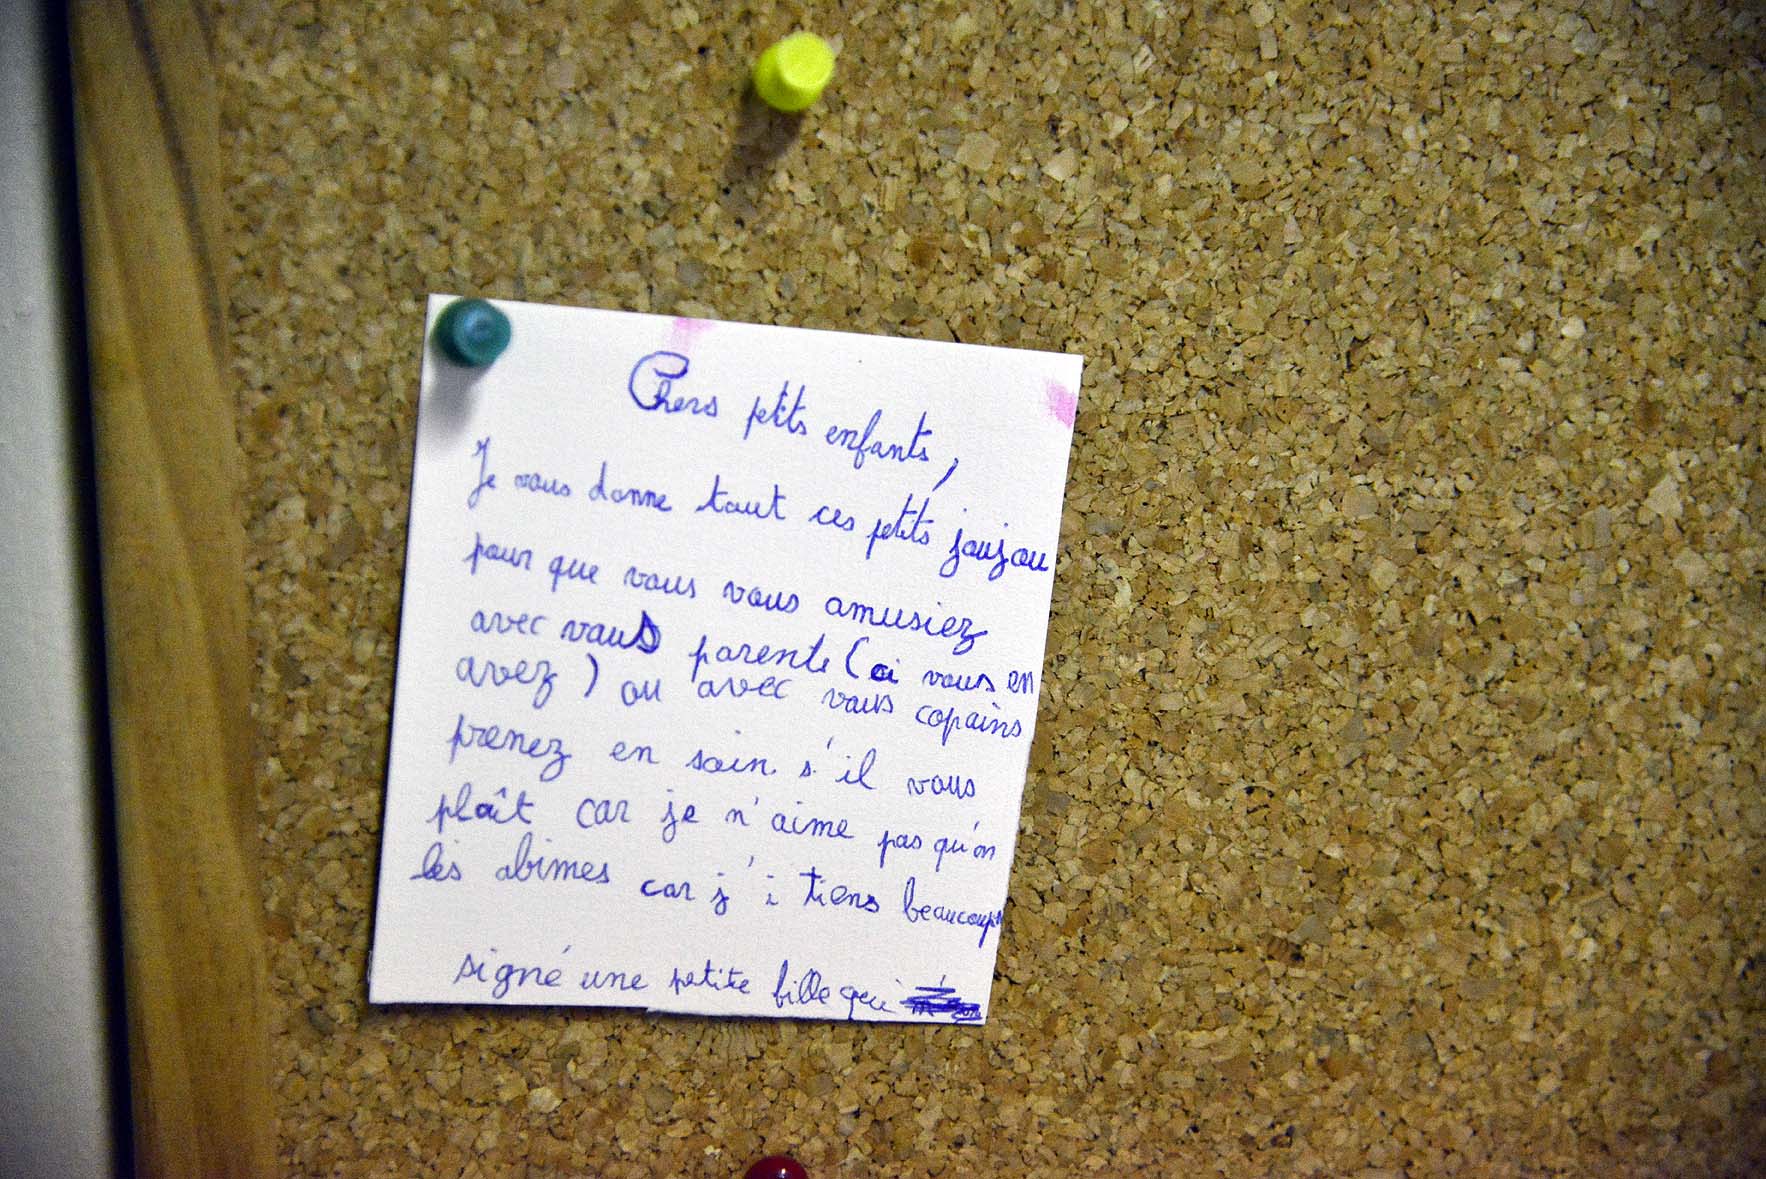 Chers petits enfants,
Je vous donne tout ces petits joujou
pour que vous vous amusiez
avec vous parents (si vous en
avez) ou avec vous copains
prenez en soin s'il vous
plaît car je n'aime pas qu'on
les abimes car j'i tiens beaucoup
signé une petite fille qui